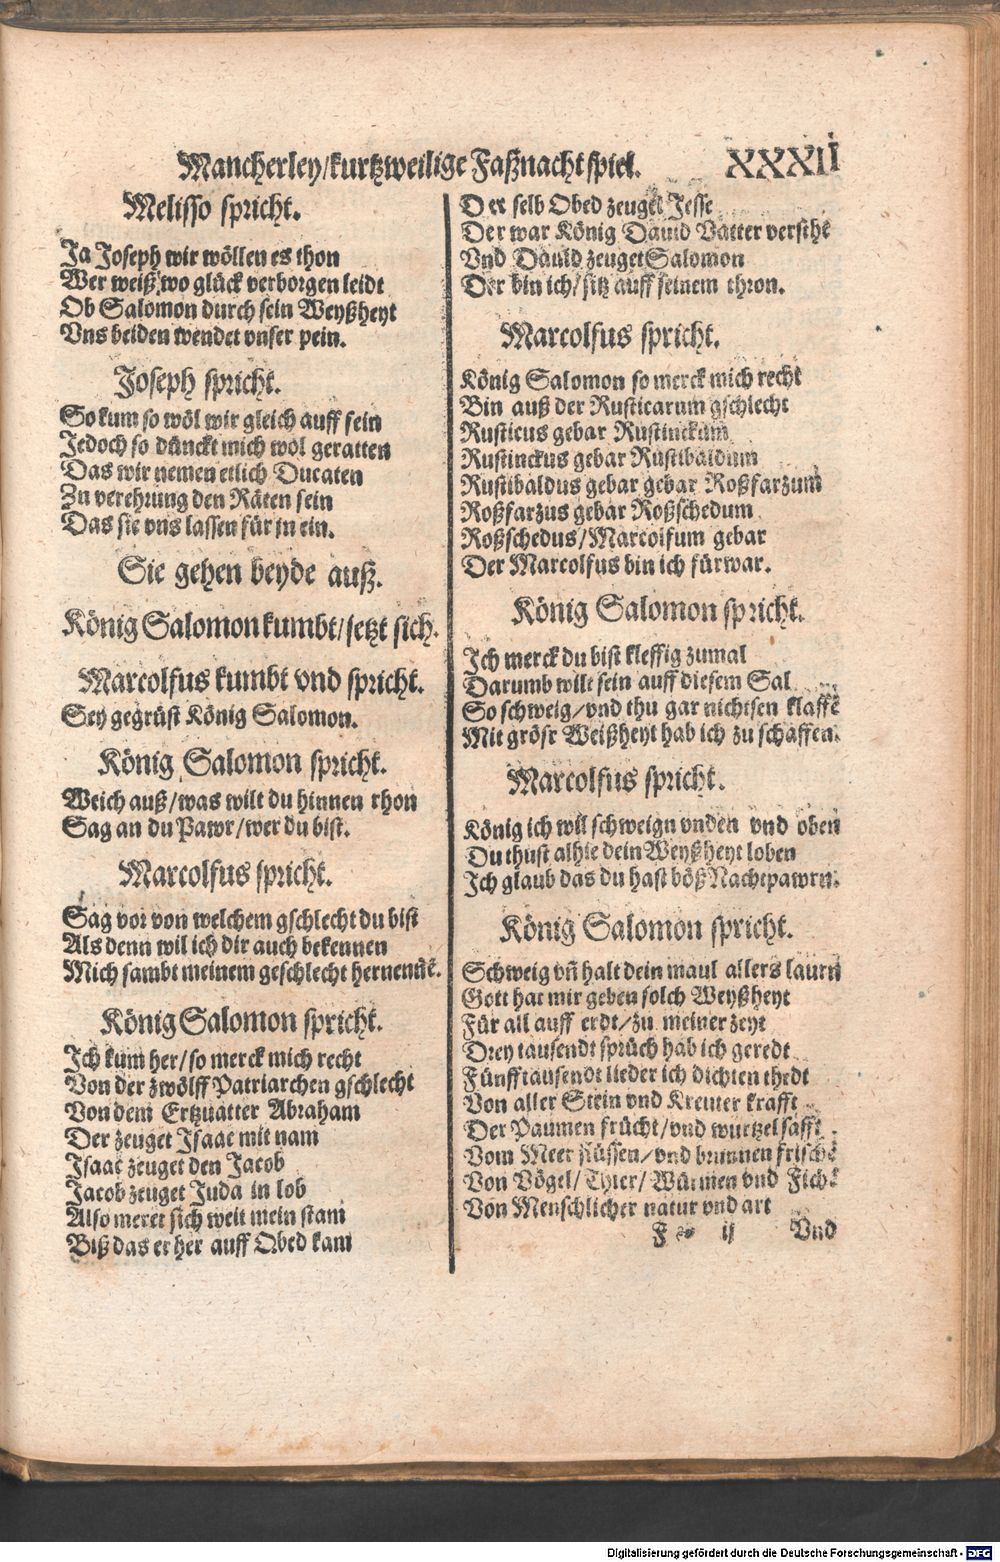 Mancherley/kurtzweilige Faßnacht spiel. XXXII
Melisso spricht.
Ja Joseph wir wöllen es thon
Wer weiß, wo glück verborgen leidt
Ob Salomon durch sein Weyßheyt
Vns beiden wendet vnser pein.
Joseph spricht.
So kum so wöl wir gleich auff sein
Jedoch so dünckt mich wol geratten
Das wir nemen etlich Ducaten
Zu verehrung den Räten sein
Das sie vns lassen für jn ein.
Sie gehen beyde auß.
König Salomon kumbt/setzt sich.
Marcolfus kumbt vnd spricht.
Sey gegrüst König Salomon.
König Salomon spricht.
Weich auß/was wilt du hinnen thon
Sag an du Pawr/wer du bist.
Marcolfus spricht.
Sag vor von welchem gschlecht du bist
Als denn wil ich dir auch bekennen
Mich sambt meinem geschlecht hernennē.
König Salomon spricht.
Ich kum her/so merck mich recht
Von der zwölff Patriarchen gschlecht
Von dem Ertzuatter Abraham
Der zeuget Isaac mit nam
Isaac zeuget den Jacob
Jacob zeuget Juda in lob
Also meret sich weit mein stam
Biß das er her auff Obed kam
Der selb Obed zeuget Jesse
Der war König Dauid Vatter versthe
Vnd Dauid zeuget Salomon
Der bin ich/sitz auff seinem thron.
Marcolfus spricht.
König Salomon so merck mich recht
Bin auß der Rusticarum gschlecht
Rusticus gebar Rustinckum
Rustinckus gebar Rustibaldum
Rustibaldus gebar gebar Roßfarzum
Roßfarzus gebar Roßschedum
Roßschedus/Marcolfum gebar
Der Marcolfus bin ich fürwar.
König Salomon spricht.
Ich merck du bist kleffig zumal
Darumb wilt sein auff diesem Sal
So schweig/vnd thu gar nichtsen klaffē
Mit grösr Weißheyt hab ich zu schaffen.
Marcolfus spricht.
König ich wil schweign vnden vnd oben
Du thust alhie dein Weyßheyt loben
Ich glaub das du hast böß Nachtpawrn.
König Salomon spricht.
Schweig vñ halt dein maul allers laurn
Gott hat mir geben solch Weyßheyt
Für all auff erdt/zu meiner zeyt
Drey tausendt sprüch hab ich geredt
Fünfftausendt lieder ich dichten thedt
Von aller Stein vnd Kreuter krafft
Der Paumen frücht/vnd wurtzel safft
Vom Meer flüssen/vnd brunnen frischē
Von Vögel/Thier/Würmen vnd Fischē
Von Menschlicher natur vnd art
F ij Vnd
Digitalisierung gefördert durch die Deutsche Forschungsgemeinschaft - DFG